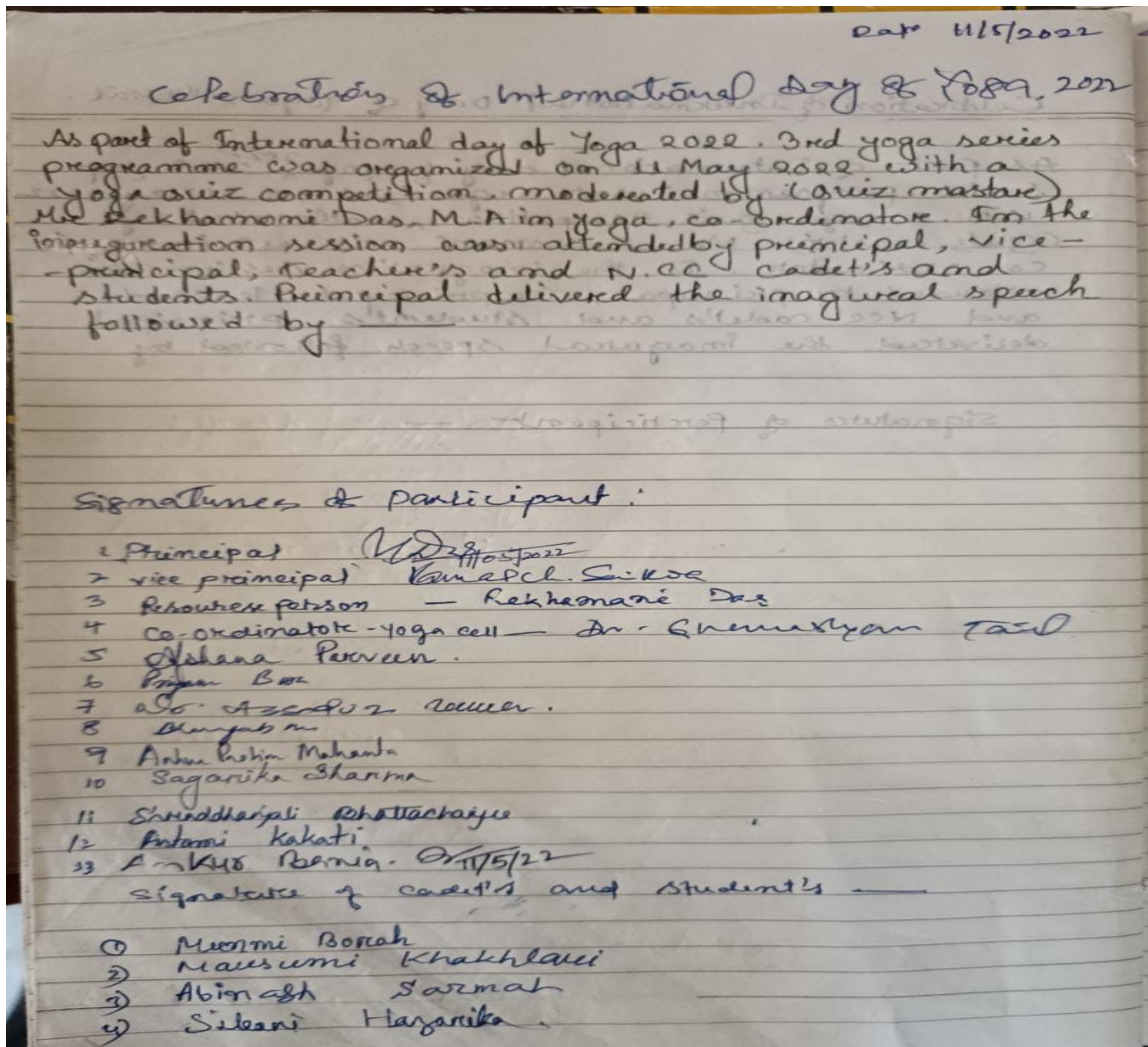 Date 11/5/2022
Celebration of International Day of Yoga, 2022
As part of International day of Yoga 2022. 3rd yoga series
preogramme was oreganized on 11 May 2022 with a
yoga quiz competition, moderated by (quiz mastare)
Ms Rekhamoni Das, M.A in yoga, co-ordinatore. In the
session was attended by preincipal, vice-
-preincipal, teacher's and N.CC cadet's and
students. Preincipal delivered the inagureal speech
followed by
Signatures of participant :
1 Principal 11/05/2022
2 vice preincipal Saikia
3 Resourese person — Rekhamani Das
4 Co-ordinatore - yoga cell — Dr.
5 Afshana Parveen.
6
7
8
9 Mahanta
10 Sagarika Sharma
11 Bhattacharjee
12 Kakati
13 Ankur 11/5/22
signature of cadet's and student's —
① Munmi Borah
2) Mausumi Khakhlari
3) Abinash Sarmah
4) Hazarika.